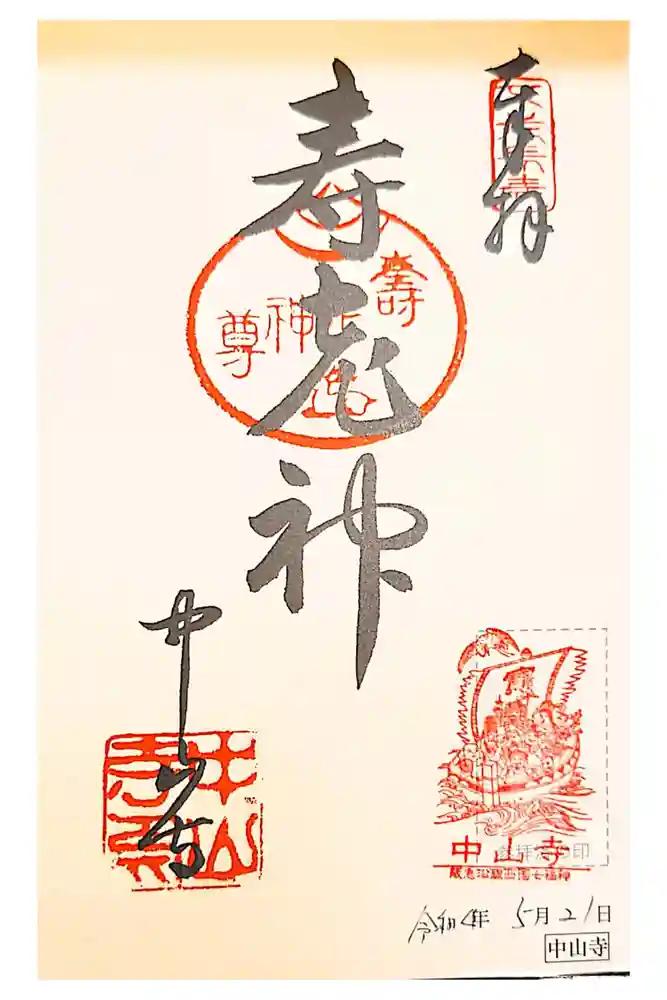 奉拝
寿老神
壽老神尊
中山寺
中山寺
参拝記念印
阪急沿線西国七福神
令和4年 5月21日
中山寺